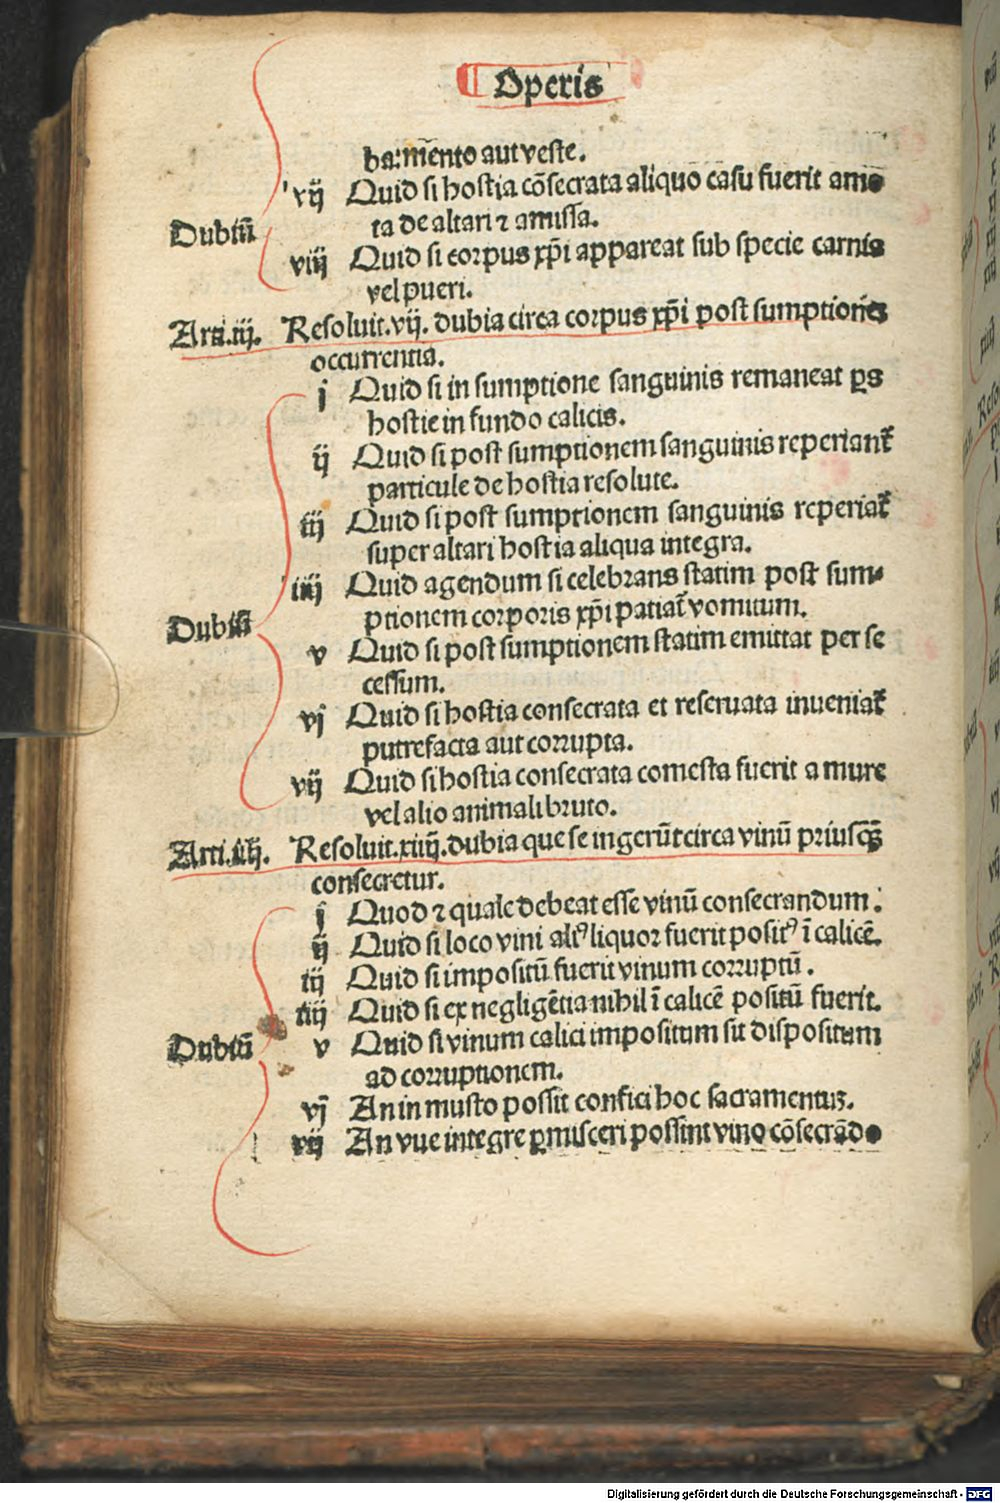 Operis
ba: mēnto aut veste.
vij Quid si hostia cōsecrata aliquo casu fuerit amo
ta de altari ⁊ amissa.
Dubiū
viij Quid si corpus xp̄i appareat sub specie carnis
vel pueri.
Arti.iij. Resoluit.vij. dubia circa corpus xp̄i post sumptionē
occurrentia.
j Quid si in sumptione sanguinis remaneat ꝑs
hostie in fundo calicis.
ij Quid si post sumptionem sanguinis reperiant̄
particule de hostia resolute.
iij Quid si post sumptionem sanguinis reperiat̄
super altari hostia aliqua integra.
iiij Quid agendum si celebrans statim post sum-
ptionem corporis xp̄i patiat̄ vomitum.
Dubiū
v Quid si post sumptionem statim emittat per se
cessum.
vj Quid si hostia consecrata et reseruata inueniat̄
putrefacta aut corrupta.
vij Quid si hostia consecrata comesta fuerit a mure
vel alio animali bruto.
Arti.iiij. Resoluit.xiiij.dubia que se ingerūt circa vinū priusꝙ̄
consecretur.
j Quod ⁊ quale debeat esse vinū consecrandum.
ij Quid si loco vini aliꝰ liquor fuerit positꝰ ī calicē.
iij Quid si impositū fuerit vinum corruptū.
iiij Quid si ex negligētia nihil ī calicē positū fuerit.
Dubiū
v Quid si vinum calici impositum sit dispositum
ad corruptionem.
vj An in musto possit confici hoc sacramentuꝫ.
vij An vue integre ꝑmisceri possint vino cōsecrādo
Digitalisierung gefördert durch die Deutsche Forschungsgemeinschaft - DFG